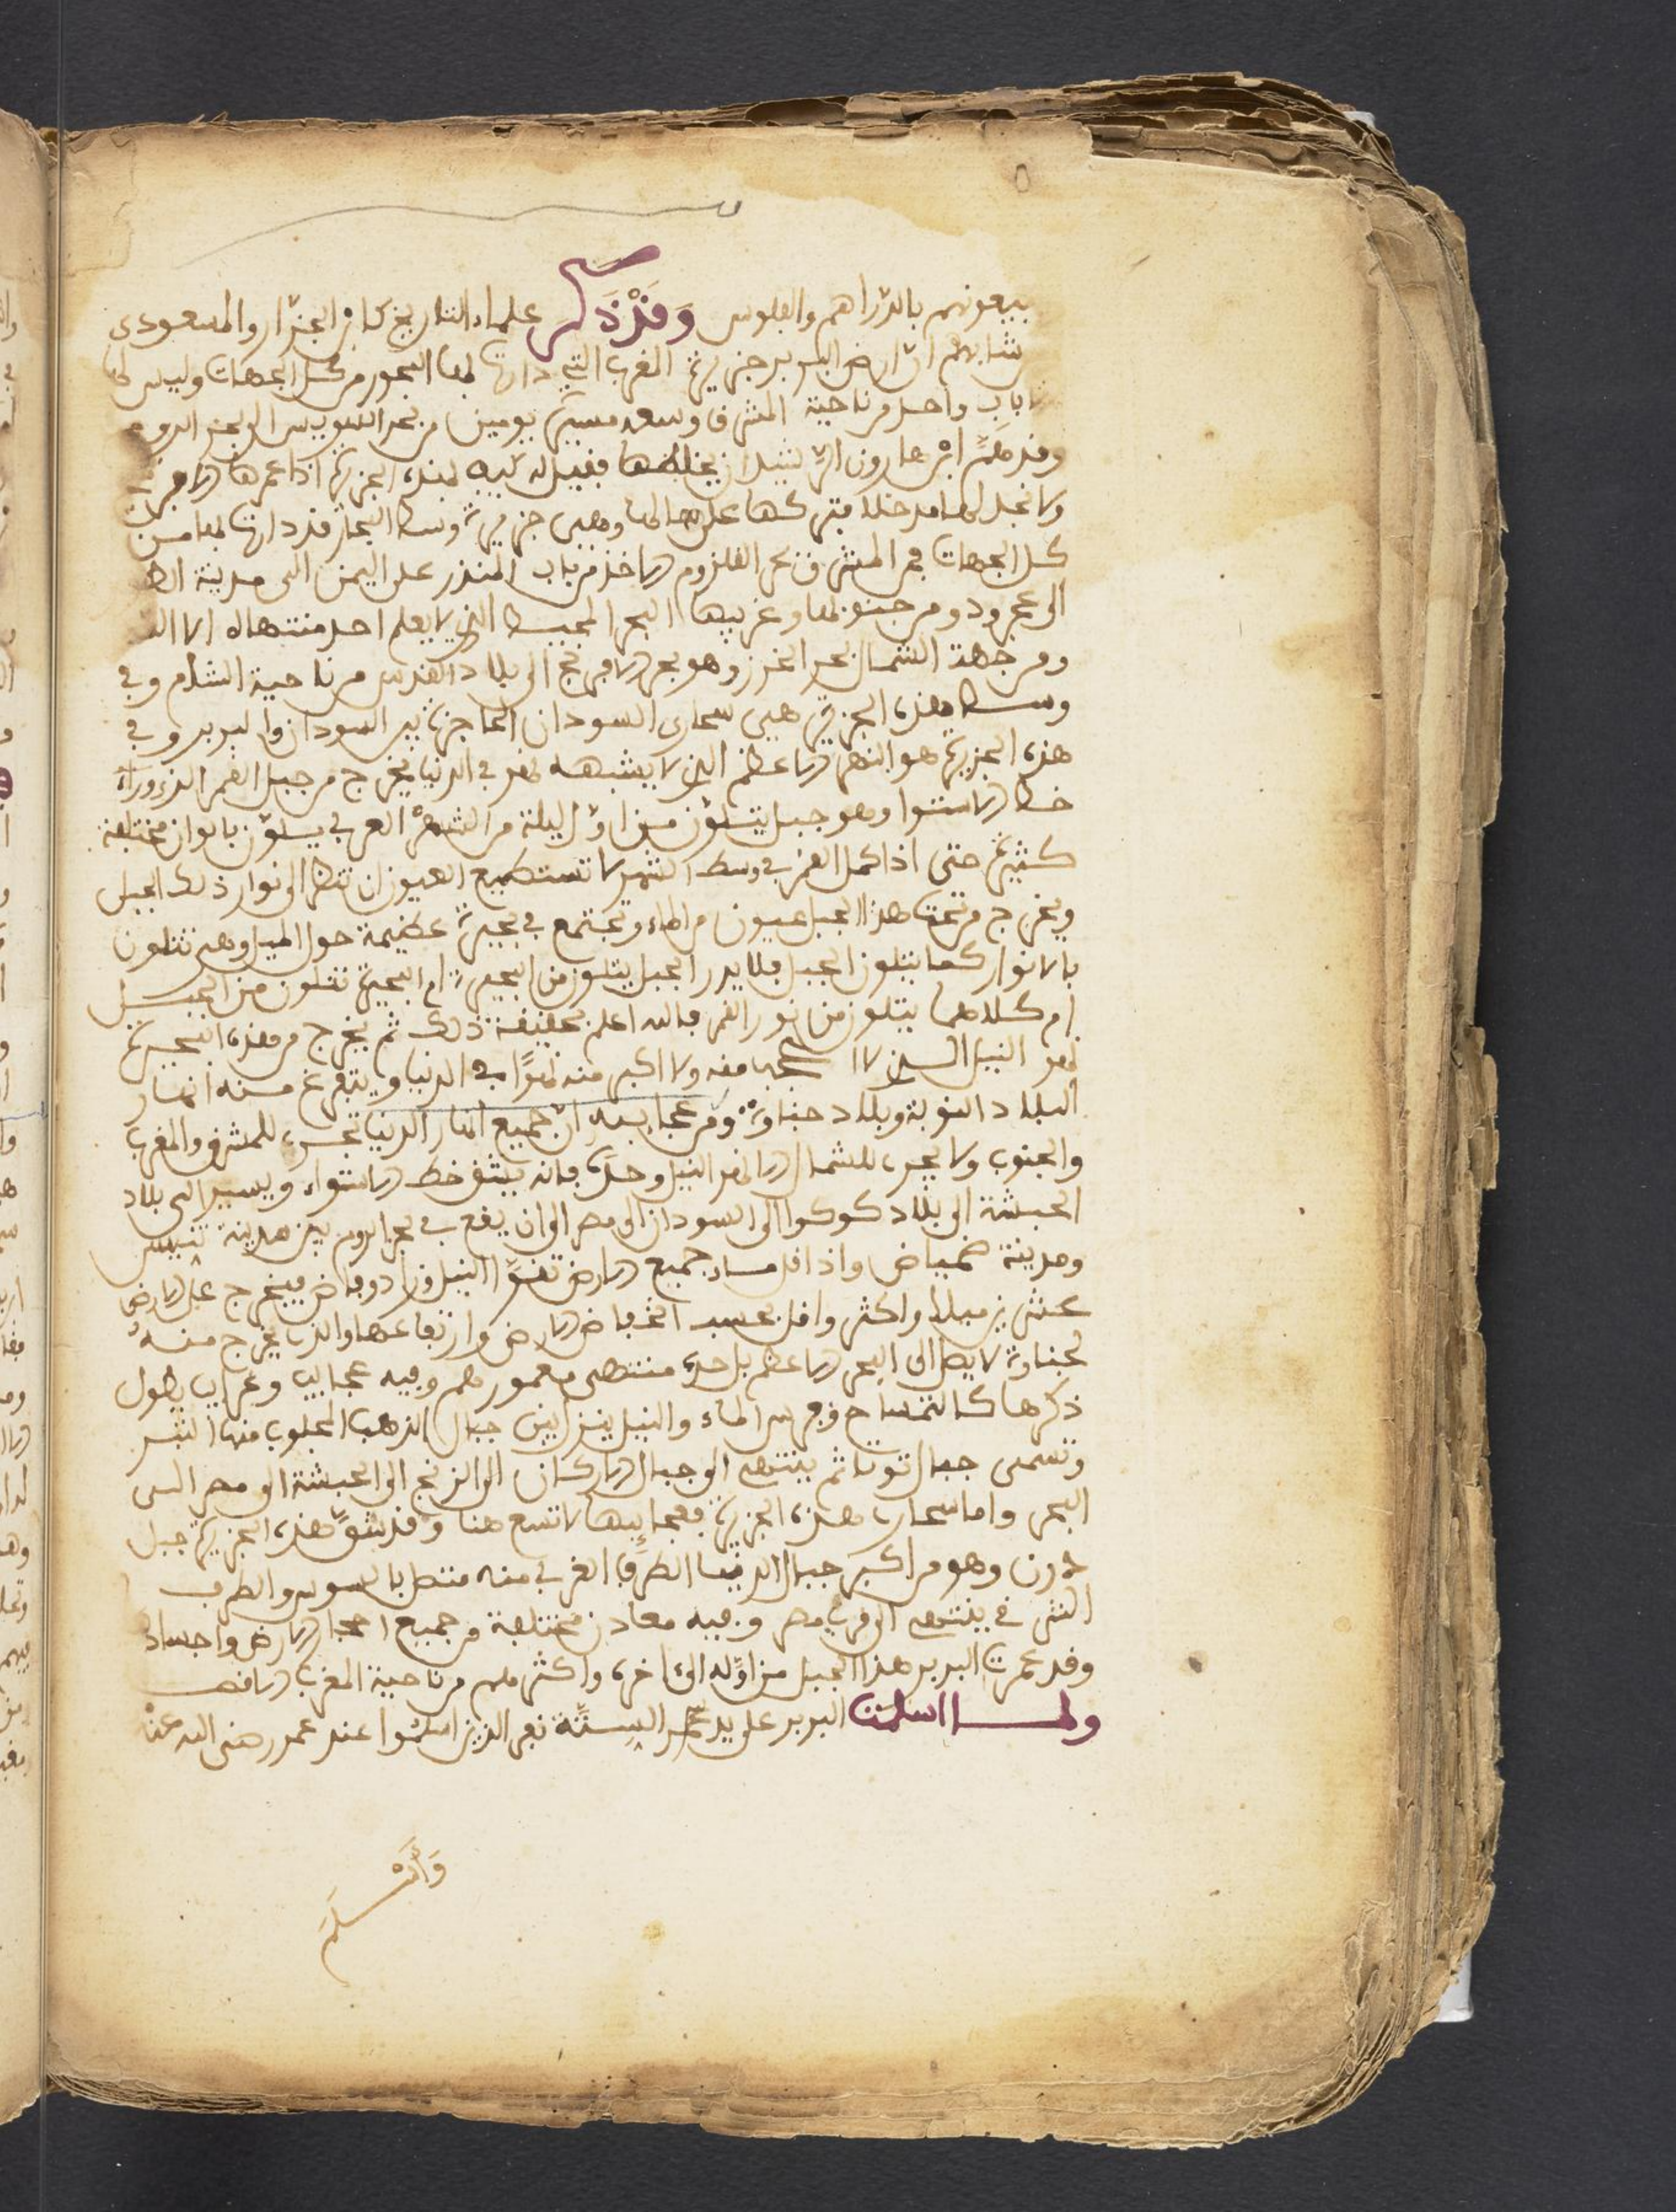 يبيعونهم بالدراهم والفلوس وَقَدْ ذَكَر علماء التاريخ كابن الجزار والمسعودي
ان ارض البربر جزيرة المغرب التي دارت بها البحور من كل الجهات وليس لها
باب واحد من ناحية المشرف وسعه مسيرة يومين من بحر السويس الى بحر الروم
وقد هَمَّ ابن هارون الرشيد ان فقيل له هذه الجزيرة اذا عمرها
ولا تجد لها مدخلا فتركها على حالها وهي جزيرة وسط البحار قد دارت بها من
كل الجهات فمن المشرق بحر القلزوم الاخذ من باب المنذر على اليمن الى مدينة
الى عجرود ومن جنوبها وغربيها البحر المحيط الذي لا يعلم احد منتهاه الا الله
ومن جهة الشمال بحر الخزر وهو بحر الافرنج الى بلاد القدس من ناحية الشام وفي
وسط هذه الجزيرة هي سحارى السودان الحاجزة بين السودان والبربر وفي
هذه الجزيرة هو النهر الاعظم الذي لا يشبهه نهر في الدنيا يخرج من جبل القمر الذي وراء
خط الاستوا وهو جبل يتلون من اول ليلة من الشهر العربي يتلون بالوان مختلفة
كثيرة حتى اذا كمل القمر في وسط الشهر لا تستطيع العيون ان تنظر الى نوار ذلك الجبل
ويخرج من تحت هذا الجبل عيون من الماء وتجتمع في بحيرة عظيمة حول الجبل وهي تتلون
بالانوار كما يتلون الجبل فلا يدر الجبل يتلون من البحيرة ام البحيرة تتلون من الجبل
ام كلاهما يتلون من نور القمر فالله اعلم بحقيقة ذلك ثم يخرج من هذه البحيرة
نهر النيل الذي لا اعجب منه ولا اكبر منه نهرًا في الدنيا ويتفرغ منه انهار
البلاد النوبة وبلاد جناوة ومن عجايبه ان جميع انهار الدنيا تجري للمشرق والمغرب
والجنوب ولا يجري للشمال الا نهر النيل وحده فانه يشق خط الاستواء ويسير الى بلاد
الحبشة الى بلاد كوكوا الى السودان الى مصر الى ان يقع في بحر الروم بين مدينة تنيس
ومدينة ضمياض واذا قل ماء جميع الارض تقوّا النيل وزاد وفاض فيخرج على الارض
عشرين ميلا واكثر واقل بحسب انخفاض الارض وارتفاعها والذي يخرج منه
لجناوة لا يصل الى البحر الاعظم بل حده منتهى معمورهم وفيه عجايب وغرايب يطول
ذكرها كالتمساح وفرس الماء والنيل ينزل بين جبال الذهب المجلوب منها التبر
وتسمى جبال توتا ثم ينتهي الى جبال الاركان الى الزنج الى الحبشة الى مصر الى
البحر واما سحارى هذه الجزيرة فعجايبها لا تسع هنا وقد شقَّ هذه الجزيرة جبل
درن وهو من اكبر جبال الدنيا الطرف الغربي منه متصل بالسوس والطرف
الشرقي ينتهي الى قرب مصر وفيه معادن مختلفة من جميع احجار الارض واجساد
وقد عمرت البربر هذا الجبل من اوّله الى ءاخره واكثرهم من ناحية المغرب الاقصى
ولما اسلمت البربر على يد الستة نفر الذين اسلموا عند عمر رضي الله عنه